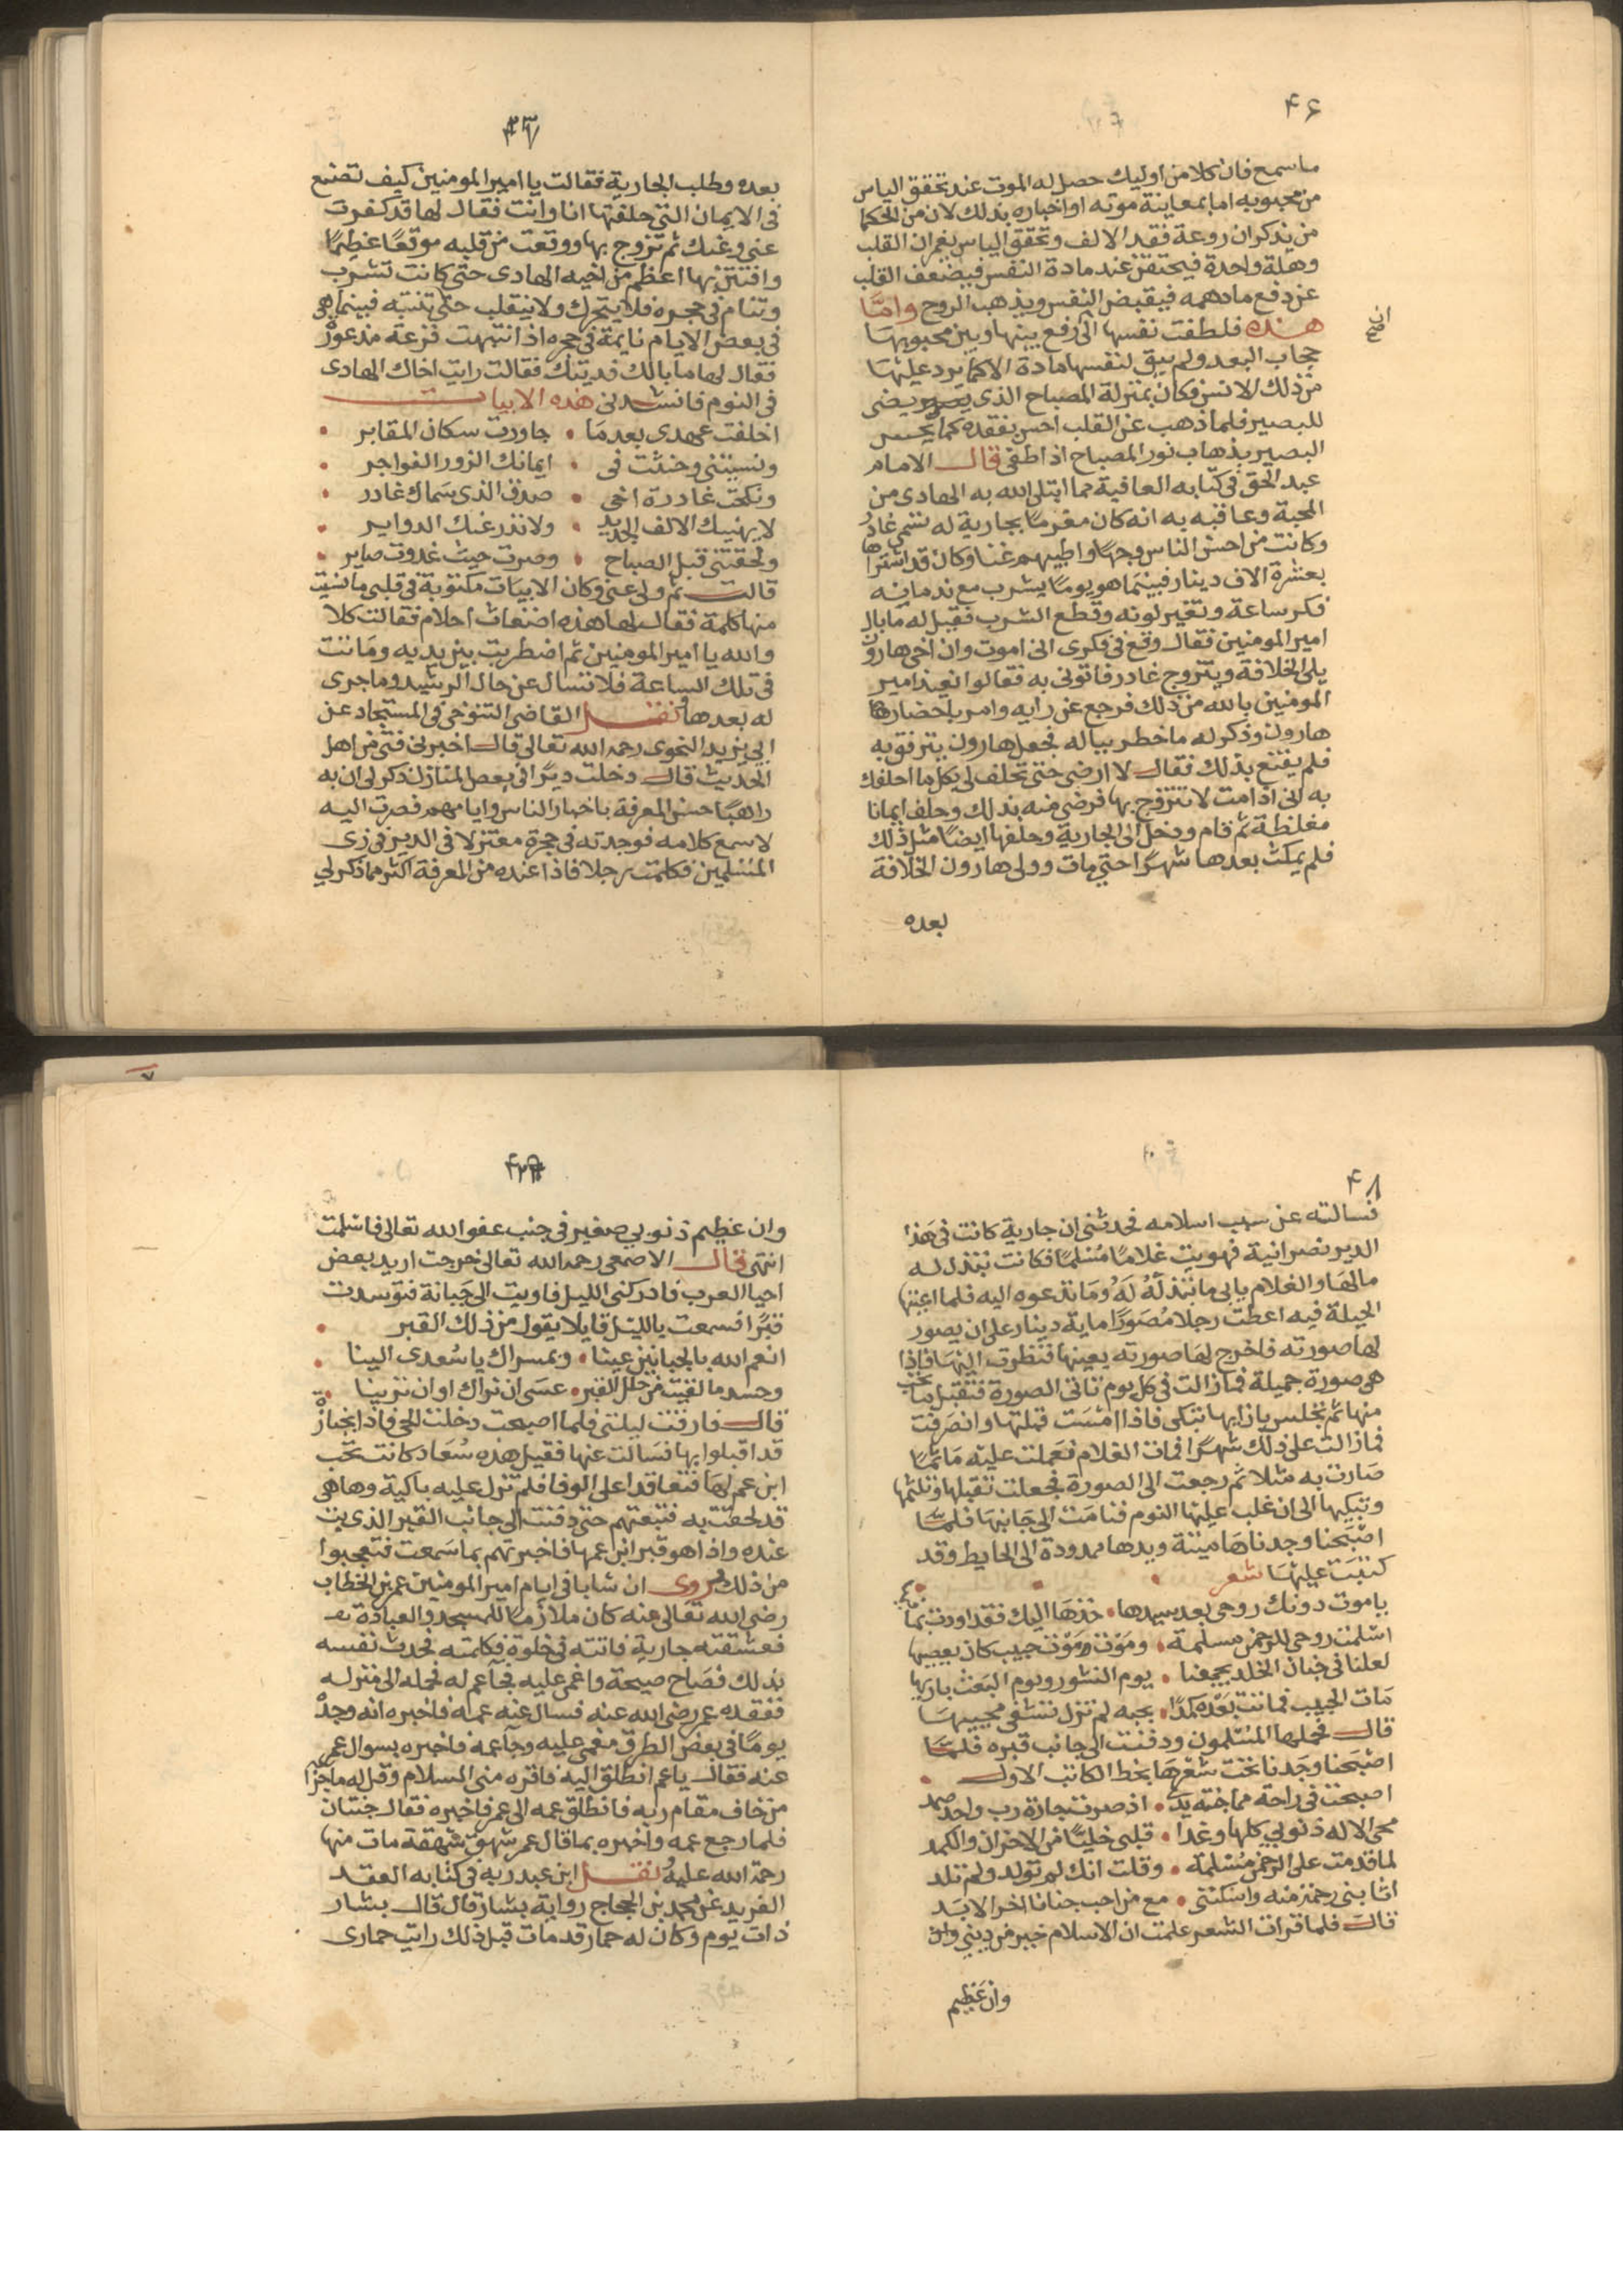 ۴۶
ماسمع فان كلا من اوليك حصل له الموت عند تحقق الياس
من محبوبه اما بمعاينة موته او اخباره بذلك لان من الحكما
من يذكر ان روعة فقد الالف وتحقق الياس يغمران القلب
وهلة واحدة فيحتقن عند مادة النفس فيضعف القلب
عن دفع ما دهمه فيقبض النفس ويذهب الروح وامّا
هذه فلطفت نفسها الى رفع بينها وبين محبوبها
ان
صح
حجاب البعد ولم يبق لنفسها مادة الا كما يرد عليها
من ذلك الانس فكان بمنزلة المصباح الذى يضى
للبصير فلما ذهب عن القلب احس بفقده كما يحس
البصير بذهاب نور المصباح اذا طفى قال الامام
عبد الحق فى كتابه العافية مما ابتلى الله به الهادى من
المحبة وعاقبه به انه كان مغرمًا بجارية له تسمى غادر
وكانت من احسن الناس وجهًا واطيبهم غنا وكان قد اشتراها
بعشرة الاف دينار فبينما هو يومًا يشرب مع ندمايه
فكر ساعة وتغير لونه وقطع الشرب فقيل له ما بال
امير المومنين فقال وقع فى فكرى انى اموت وان اخى هارون
يلى الخلافة ويتزوج غادر فاتونى به فقالوا نعيذ امير
المومنين بالله من ذلك فرجع عن رايه وامر باحضار
هارون وذكر له ما خطر بباله فجعل هارون يترفق به
فلم يقنع بذلك فقال لا ارضى حتى تحلف لى بكل ما احلفك
به انى اذا مت لا تتزوج بها فرضى منه بذلك وحلف ايمانا
مغلظة ثم قام ودخل الى الجارية وحلفها ايضًا مثل ذلك
فلم يمكث بعدها شهرًا حتى مات وولى هارون الخلافة
بعده
بعده وطلب الجارية فقالت يا امير المومنين كيف تصنع
فى الايمان التى حلفتها انا وانت فقال لها قد كفرت
عنى وعنك ثم تزوج بها ووقعت من قلبه موقعًا عظيمًا
وافتتن بها اعظم من اخيه الهادى حتى كانت تشرب
وتنام فى حجره فلا يتحرك ولا ينقلب حتى تنتبه فبينما هى
فى بعض الايام نايمة فى حجره اذ انتبهت فزعة مذعورة
فقال لها ما بالك فديتك فقالت رايت اخاك الهادى
فى النوم فانشدنى هذه الابيات
اخلفت عهدى بعدما • جاورت سكان المقابر •
ونسيتنى وحنثت فى • ايمانك الزور الفواجر •
ونكحت غادرة اخى • صدق الذى سماك غادر •
لا يهنيك الالف الجديد • ولا تدر عنك الدواير •
ولحقتنى قبل الصباح • وصرت حيث غدوت صاير •
قالت ثم ولى عنى وكان الابيات مكتوبة فى قلبى ما نسيت
منها كلمة فقال لها هذه اضغاث احلام فقالت كلا
والله يا امير المومنين ثم اضطربت بين يديه وماتت
فى تلك الساعة فلا تسال عن حال الرشيد وما جرى
له بعدها نقل القاضى التنوخى فى المستجاد عن
ابى يزيد النحوى رحمه الله تعالى قال اخبرنى فتى من اهل
الحديث قال دخلت ديرًا فى بعض المنازل ذكر لى ان به
راهبًا حسن المعرفة باخبار الناس وايامهم فصرت اليه
لاسمع كلامه فوجدته فى حجرة معتزلا فى الدير فى زى
المسلمين فكلمت رجلا فاذا عنده من المعرفة اكثر مما ذكر لي
۴۸
فسالته عن سبب اسلامه فحدثنى ان جارية كانت فى هذا
الدير نصرانية فهويت غلامًا مسلمًا فكانت تبذل له
مالها والغلام يابى ما تبذله له وما تدعوه اليه فلما اعيتها
الحيلة فيه اعطت رجلا مصورًا ماية دينار على ان يصور
لها صورته فاخرج لها صورته بعينها فنظرت اليها فاذا
هى صورة جميلة فمازالت فى كل يوم تاتى الصورة فتقبل ما تحب
منها ثم تجلس بازايها تبكى فاذا امست قبلتها وانصرفت
فمازالت على ذلك شهرًا فمات الغلام فعملت عليه ماتمًا
صارت به مثلا ثم رجعت الى الصورة فجعلت تقبلها وتلثمها
وتبكيها الى ان غلب عليها النوم فنامت الى جانبها فلما
اصبحنا وجدناها ميتة ويدها ممدودة الى الحايط وقد
كتبت عليها شعر
ياموت دونك روحى بعد سيدها • خذها اليك فقد اودت بما
اسلمت روحى للرحمن مسلمة • ومؤت موت حبيب كان يعصيها
لعلنا فى جنان الخلد يجمعنا • يوم النشور ويوم البعث باريها
مات الحبيب فماتت بعده كمدًا • بحبه لم تزل تشقى محبيها
قال فحملها المسلمون ودفنت الى جانب قبره فلما
اصبحنا وجدنا تحت شعرها بخط الكاتب الاول •
اصبحت فى راحة مما جنته يدى • اذ صرت جارة رب واحد صمد
محى الاله ذنوبى كلها وغدا • قلبى خليًا من الاحزان والكمد
لما قدمت على الرحمن مسلمة • وقلت انك لم تولد ولم تلد
اثابنى رحمة منه واسكننى • مع من احب جنانا اخر الابد
قال فلما قرات الشعر علمت ان الاسلام خير من دينى وان
وان عظيم
وان عظيم ذنوبي صغير فى جنب عفو الله تعالى فاسلمت
انتهى قال الاصمعى رحمه الله تعالى خرجت اريد بعض
احيا العرب فادركنى الليل فاويت الى جبانة فتوسدت
قبرًا فسمعت بالليل قايلا يقول من ذلك القبر •
انعم الله بالخيالين عينا • وبمسراك يا سعدى الينا •
وحسد ما لقيت من خلل القبر • عسى ان نراك او ان ترينا •
قال فارقت ليلتى فلما اصبحت دخلت الحى فاذا بجنازة
قد اقبلوا بها فسالت عنها فقيل هذه سعاد كانت تحب
ابن عم لها فتعاقدا على الوفا فلم تزل عليه باكية وهاهى
قد لحقت به فتبعتهم حتى دفنت الى جانب القبر الذى بت
عنده واذا هو قبر ابن عمها فاخبرتهم بما سمعت فتعجبوا
من ذلك روى ان شابا فى ايام امير المومنين عمر بن الخطاب
رضى الله تعالى عنه كان ملازمًا للمسجد والعبادة
فعشقته جارية فاتته فى خلوة فكلمته فحدث نفسه
بذلك فصاح صيحة واغمى عليه فجآ عم له فحمله الى منزله
ففقده عمر رضى الله عنه فسال عنه عمه فاخبره انه وجده
يومًا فى بعض الطرق مغمى عليه وجآ عمه فاخبره بسوال عمر
عنه فقال ياعم انطلق اليه فاقره منى السلام وقل له ما جزا
من خاف مقام ربه فانطلق عمه الى عمر فاخبره فقال جنتان
فلما رجع عمه واخبره بما قال عمر شهق شهقة مات منها
رحمة الله عليه نقل ابن عبد ربه فى كتابه العقد
الفريد عن محمد بن الحجاج رواية بشار قال قال بشار
ذات يوم وكان له حمار قد مات قبل ذلك رايت حمارى